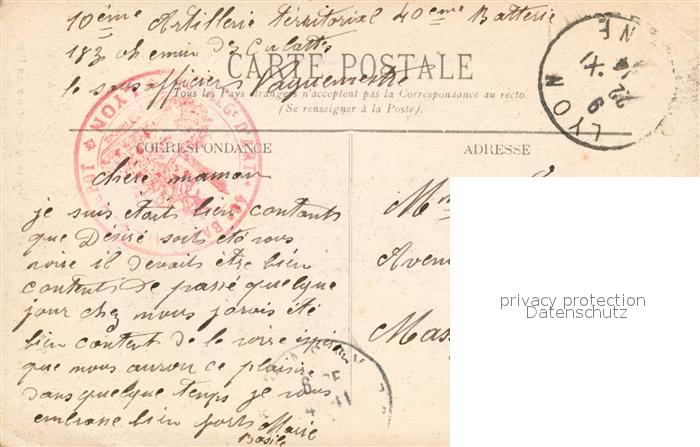 10ème Artillerie térritorial 40eme Batterie
183 chemin de
le sous officier Vaguemestre
CARTE POSTALE
Tous les Pays étrangers n'acceptent pas la Correspondance au recto.
(Se renseigner à la Poste).
LYON
CORRESPONDANCE
ADRESSE
chère maman
je suis etais bien contants
que Désiré soits eté vous
voire il devaits être bien
contents de passé quelque
jour chez nous jorais été
bien content de le voire
que nous auron ce plaisire
dans quelque temps je vous
embrasse bien forts Marie
Basile
Mme
Aven
Mas
privacy protection
Datenschutz